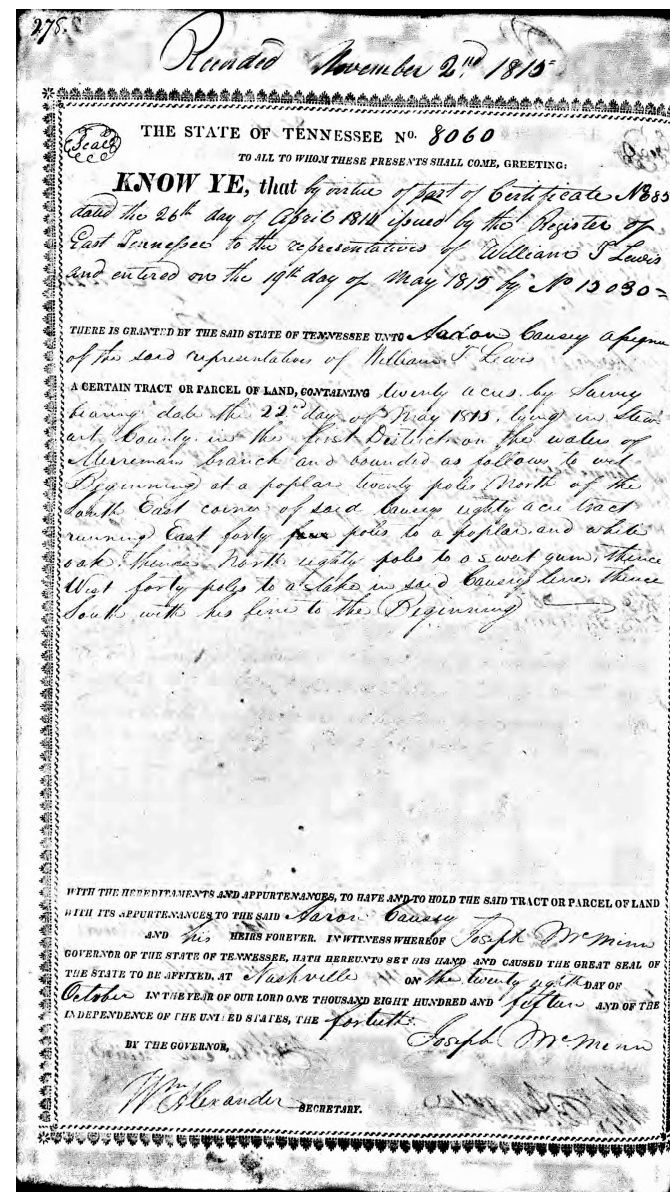 278.
Recorded November 2nd 1815
Seal
THE STATE OF TENNESSEE No. 8060
TO ALL TO WHOM THESE PRESENTS SHALL COME, GREETING:
KNOW YE, that by virtue of part of Certificate No 385
dated the 26th day of April 1814 issued by the Register of
East Tennessee to the representatives of William T Lewis
and entered on the 19th day of May 1815 by No 13030=
THERE IS GRANTED BY THE SAID STATE OF TENNESSEE UNTO Aaron Causey assignee
of the said representatives of William T Lewis
A CERTAIN TRACT OR PARCEL OF LAND, CONTAINING twenty acres by Survey
bearing date the 22nd day of May 1815, lying in Stew
art County in the first District on the waters of
Merremans branch and bounded as follows to wit
Beginning at a poplar twenty poles North of the
South East corner of said Causeys eighty acre tract
running East forty poles to a poplar and white
oak, thence North eighty poles to a sweet gum, thence
West forty poles to a stake in said Causeys line, thence
South with his line to the Beginning
WITH THE HEREDITAMENTS AND APPURTENANCES, TO HAVE AND TO HOLD THE SAID TRACT OR PARCEL OF LAND
WITH ITS APPURTENANCES TO THE SAID Aaron Causey
AND his HEIRS FOREVER. IN WITNESS WHEREOF Joseph McMinn
GOVERNOR OF THE STATE OF TENNESSEE, HATH HEREUNTO SET HIS HAND AND CAUSED THE GREAT SEAL OF
THE STATE TO BE AFFIXED, AT Nashville ON the twenty eighth DAY OF
October IN THE YEAR OF OUR LORD ONE THOUSAND EIGHT HUNDRED AND fifteen AND OF THE
INDEPENDENCE OF THE UNITED STATES, THE fortieth.
BY THE GOVERNOR, Joseph McMinn
Wm Alexander SECRETARY.